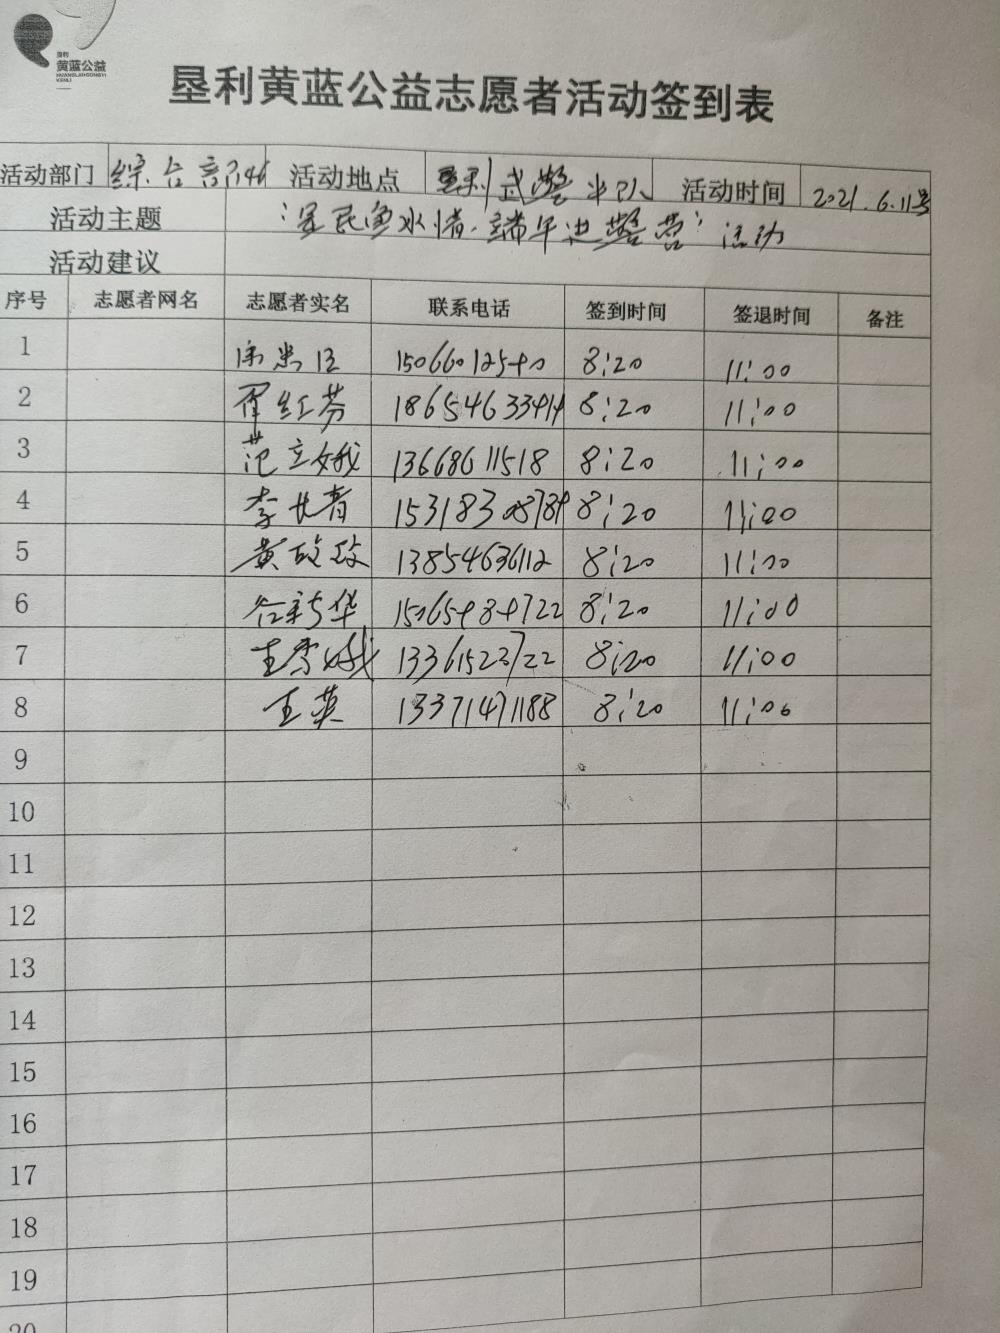 垦利
黄蓝公益
HUANGLANGONGYI
KENLI
垦利黄蓝公益志愿者活动签到表
活动部门 综合 活动地点 垦利武警中队 活动时间 2021.6.11号
活动主题 "军民鱼水情·端午进警营"活动
活动建议
序号 志愿者网名 志愿者实名 联系电话 签到时间 签退时间 备注
1 8:20 11:00
2 红芬 18654633414 8:20 11:00
3 范立娥 13668611518 8:20 11:00
4 李长青 8:20 11:00
5 黄 13854636112 8:20 11:00
6 谷新华 15065484722 8:20 11:00
7 13361523722 8:20 11:00
8 王英 13371471188 8:20 11:00
9
10
11
12
13
14
15
16
17
18
19
20